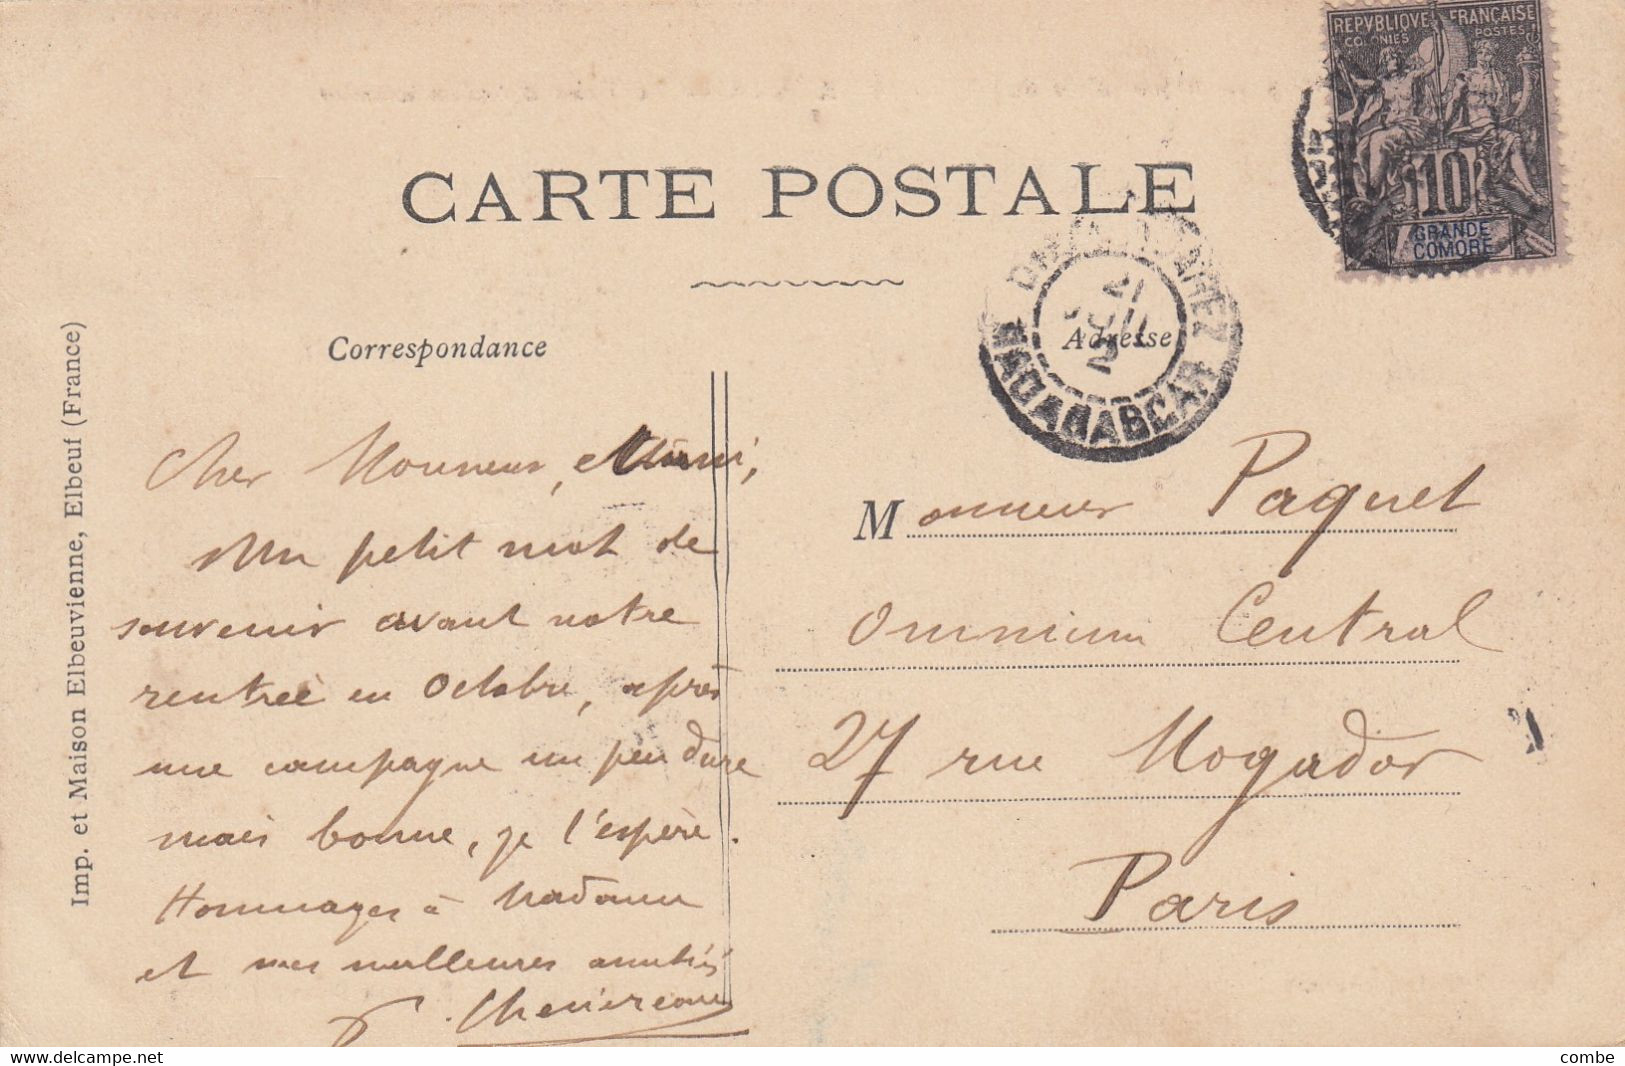 REPVBLIQVE FRANÇAISE
COLONIES POSTES
10
GRANDE
COMORE
CARTE POSTALE
21
MADAGASCAR
Correspondance
Adresse
Imp. et Maison Elbeuvienne, Elbeuf (France)
Cher Monsieur,
Un petit mot de
souvenir avant notre
rentrée en Octobre, après
une campagne un peu dure
mais bonne, je l'espère.
Hommages à Madame
et mes meilleures amitiés
Monsieur Paquet
Omnium Central
27 rue Mogador
Paris
www.delcampe.net
combe